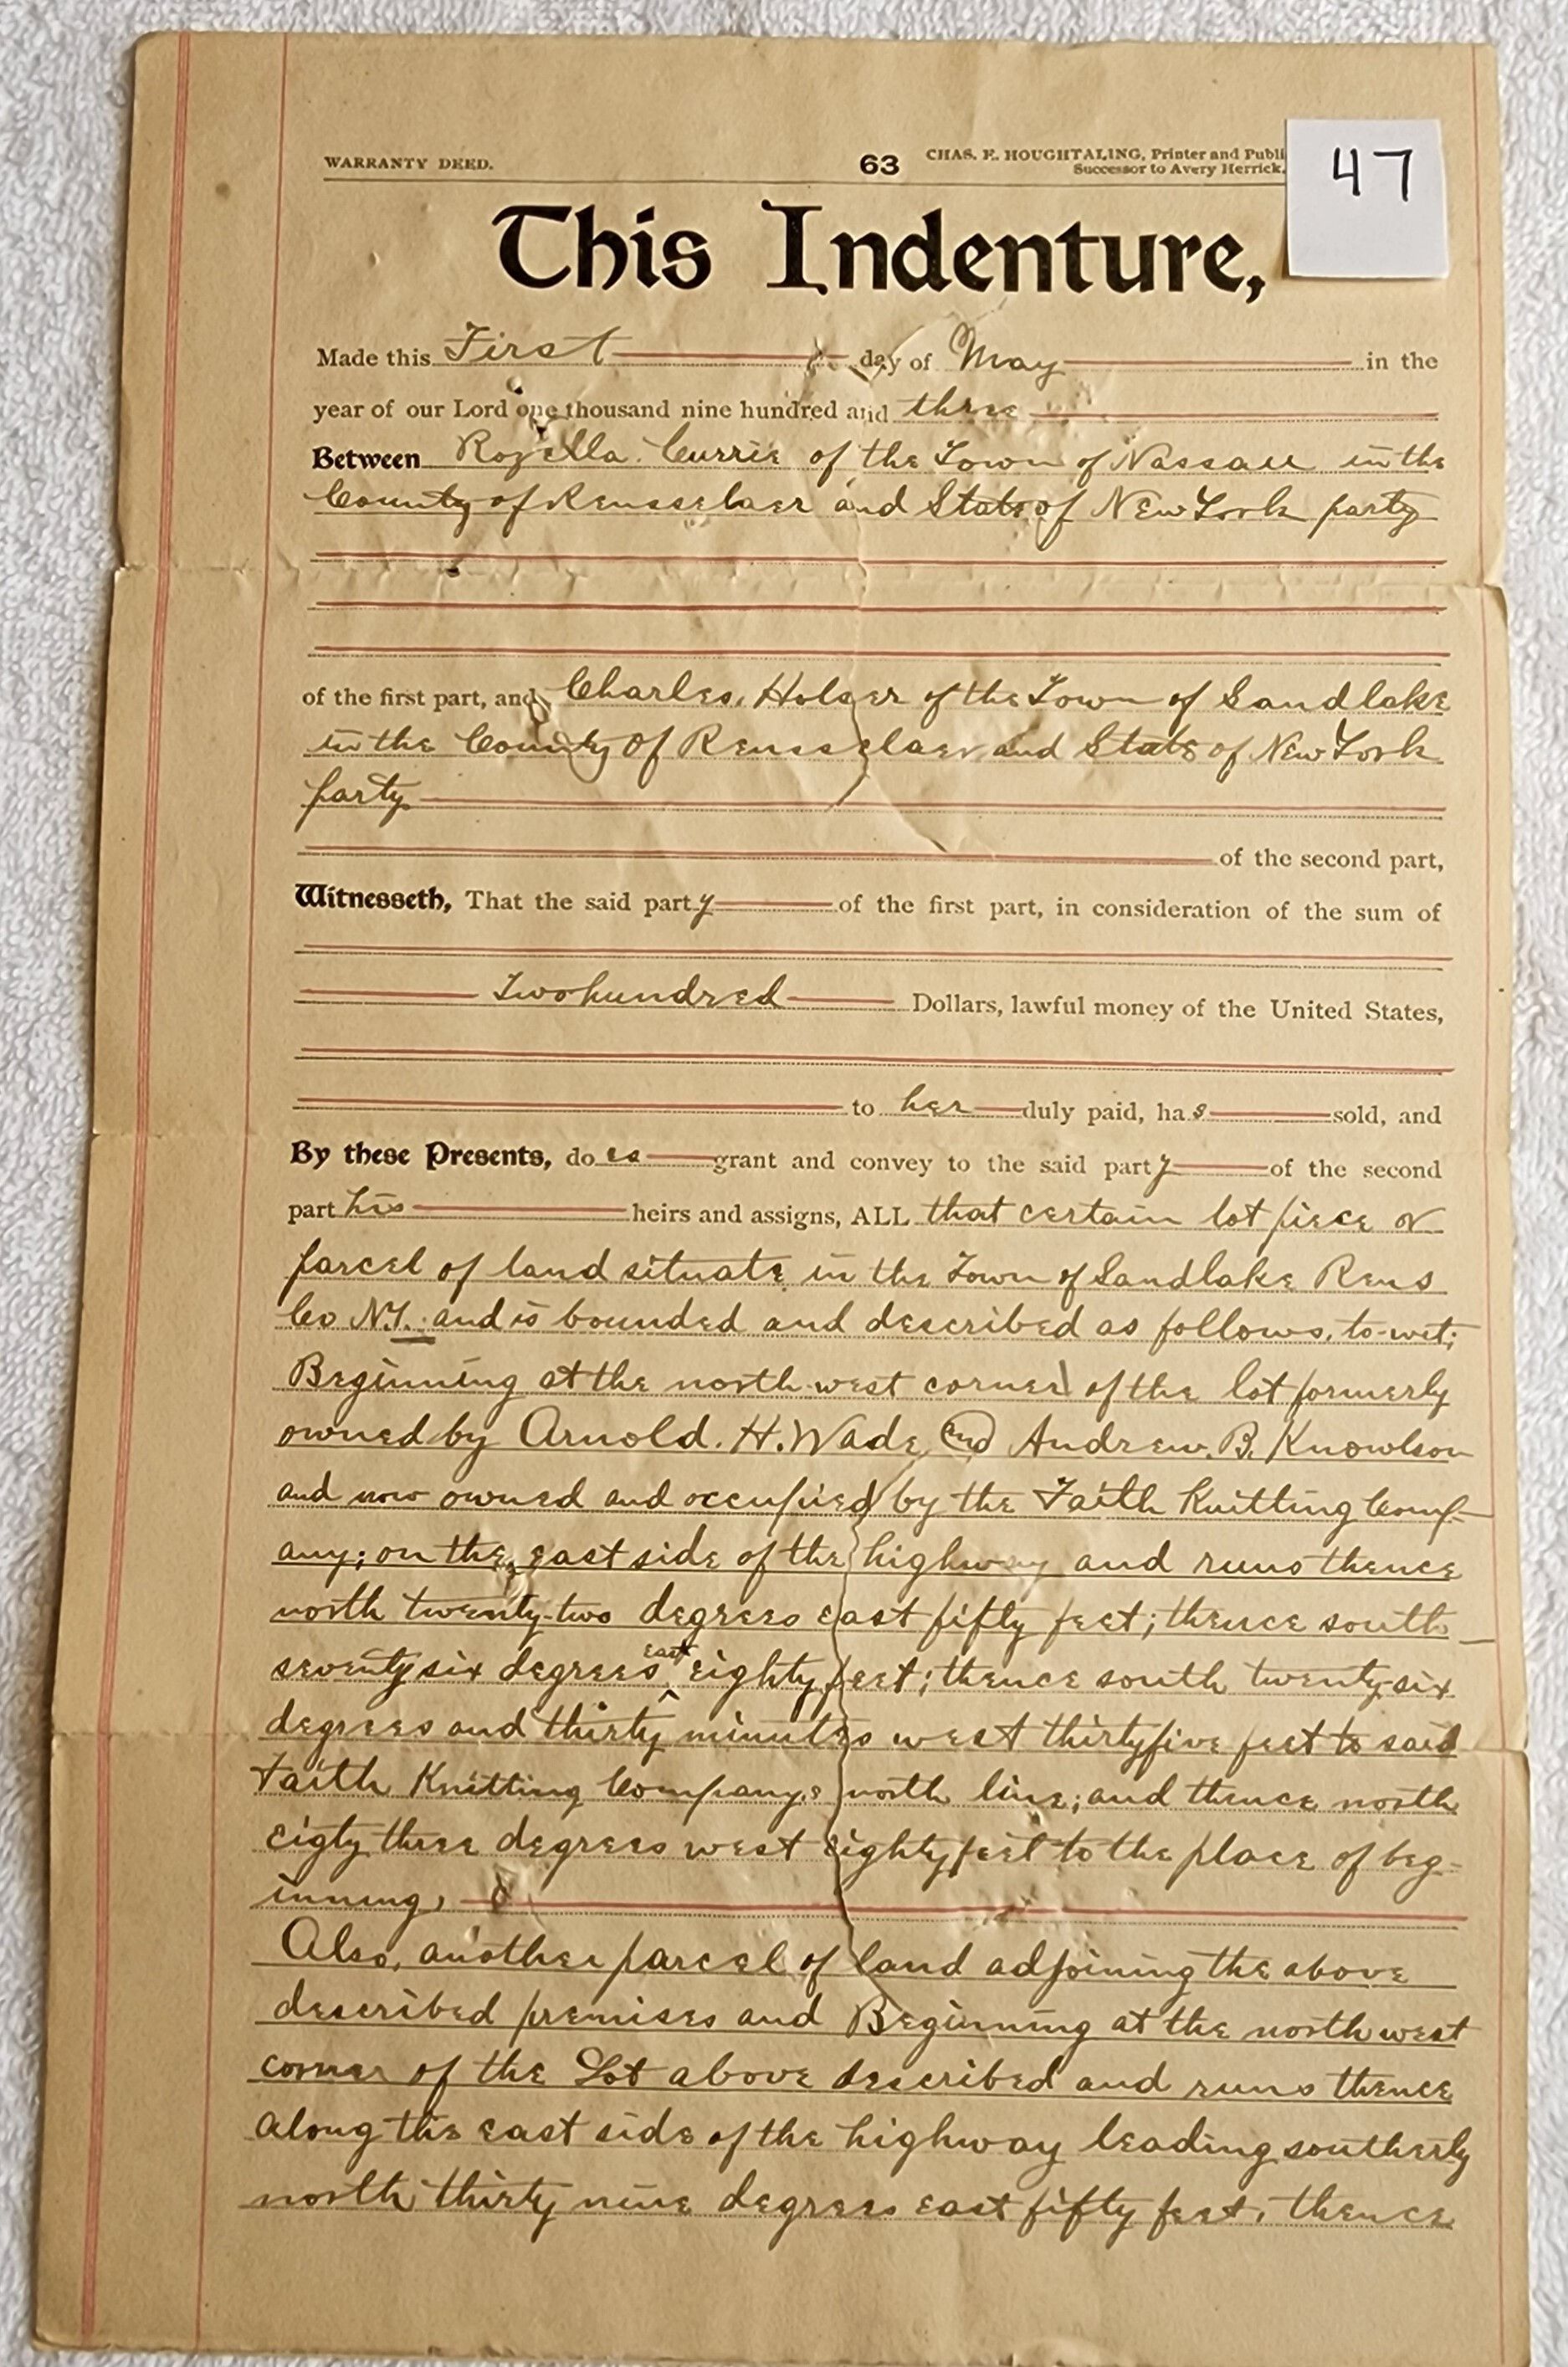 47
WARRANTY DEED. 63 CHAS. E. HOUGHTALING, Printer and Publi
Successor to Avery Herrick,
This Indenture,
Made this First day of May in the
year of our Lord one thousand nine hundred and three
Between Rozella Currie of the Town of Nassau in the
County of Rensselaer and State of New York party
of the first part, and Charles, Holser of the Town of Sandlake
in the County Of Rensselaer and State of New York
party
of the second part,
Witnesseth, That the said party of the first part, in consideration of the sum of
Two hundred Dollars, lawful money of the United States,
to her duly paid, has sold, and
By these Presents, does grant and convey to the said party of the second
part his heirs and assigns, ALL that certain lot piece or
parcel of land situate in the Town of Sandlake Rens
Co N.Y. and is bounded and described as follows, to-wit;
Beginning at the north-west corner of the lot formerly
owned by Arnold. H. Wade and Andrew. B. Knowlson
and now owned and occupied by the Faith Knitting Comp-
any; on the east side of the highway and runs thence
north twenty-two degrees east fifty feet; thence south
seventy six degrees east eighty feet; thence south twenty-six
degrees and thirty minutes west thirty five feet to said
Faith Knitting Companys north line; and thence north
eigty three degrees west eighty feet to the place of beg-
inning,
Also, another parcel of land adjoining the above
described premises and Beginning at the north west
corner of the Lot above described and runs thence
along the east side of the highway leading southerly
north thirty nine degrees east fifty feet, thence